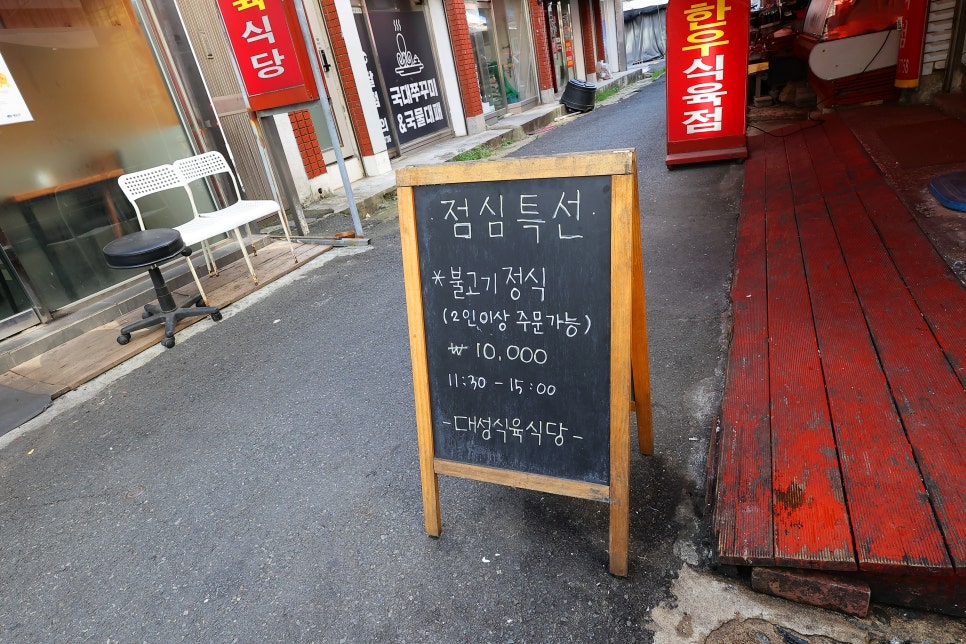 육식당
국대쭈꾸미
&국물대패
한우식육점
·점심특선·
*불고기 정식
(2인이상 주문가능)
₩ 10,000
11:30 - 15:00
-대성식육식당-